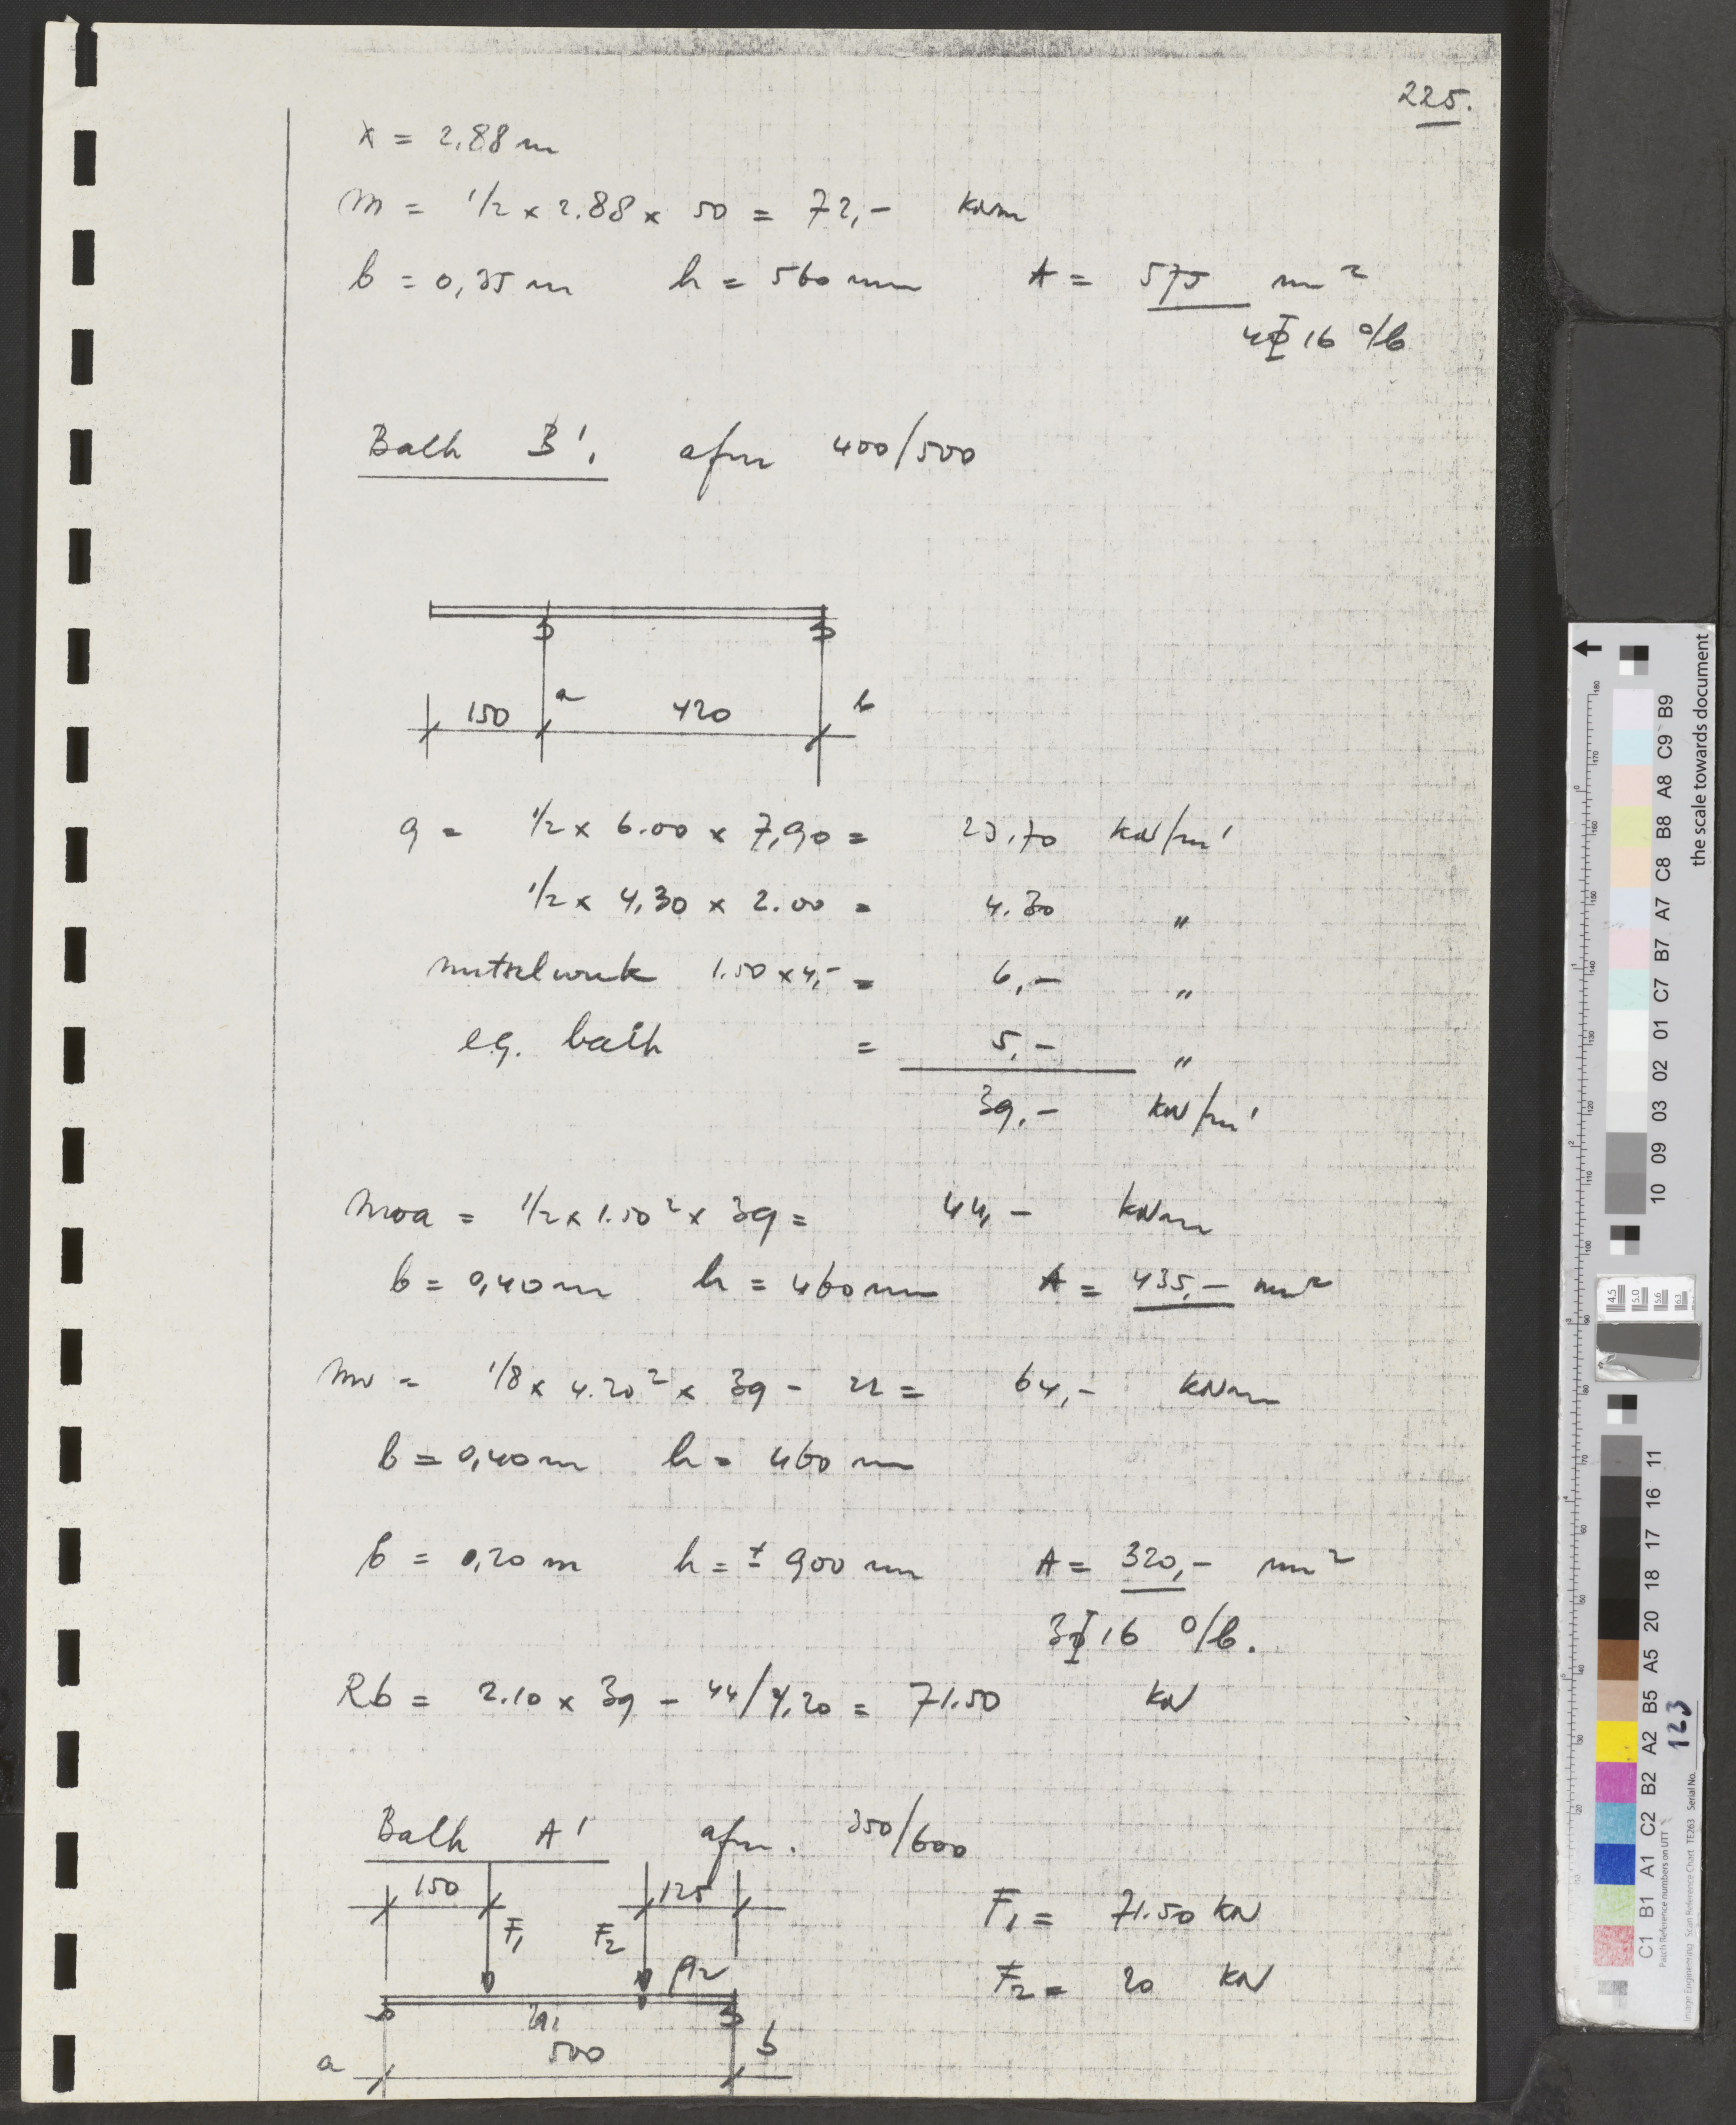 225.
x = 2,88 m
M = 1/2 x 2.88 x 50 = 72,- kNm
b = 0,35 m h = 560 mm A = 575 mm²
4Φ16 o/b
Balk B'1 afm 400/500
150 a 420 b
q = 1/2 x 6.00 x 7,90 = 23.70 kN/m'
1/2 x 4,30 x 2.00 = 4.30 "
metselwerk 1.50 x 4,- = 6,- "
e.g. balk = 5,- "
39,- kN/m'
Moa = 1/2 x 1.50² x 39 = 44,- kNm
b = 0,40 m h = 460 mm A = 435,- mm²
Mv = 1/8 x 4.20² x 39 - 22 = 64,- kNm
b = 0,40 m h = 460 m
b = 0,20 m h = ± 900 mm A = 320,- mm²
3Φ16 o/b.
Rb = 2.10 x 39 - 44/4,20 = 71.50 kN
Balk A' afm. 350/600
150 125
F1 F2 q2
F1 = 71.50 kN
F2 = 20 kN
q1
a 500 b
the scale towards document
C1 B1 A1 C2 B2 A2 B5 A5 20 18 17 16 11
10 09 03 02 01 C7 B7 A7 C8 B8 A8 C9 B9
4.5 5.0 5.6 6.3
Patch Reference numbers on UTT
Image Engineering Scan Reference Chart TE263 Serial No. 123